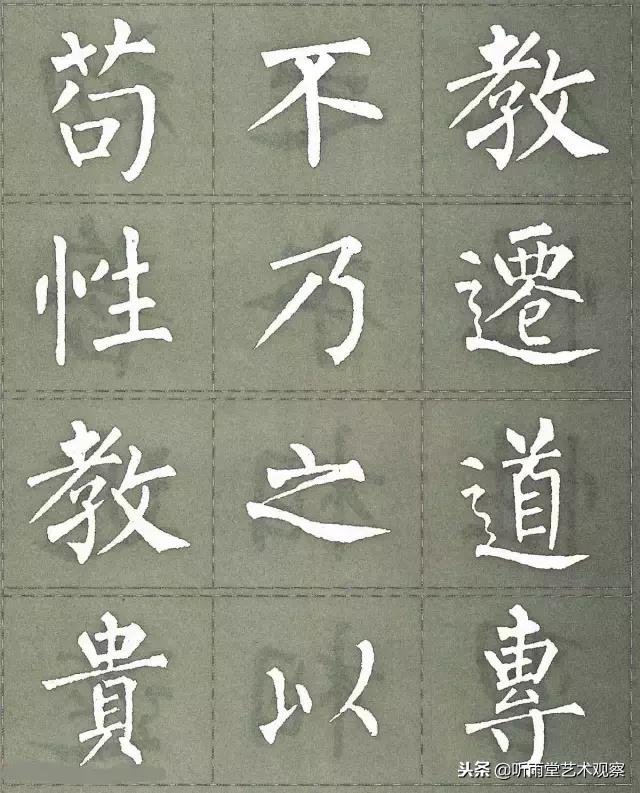 苟不教
性乃遷
教之道
貴以專
头条 @听雨堂艺术观察